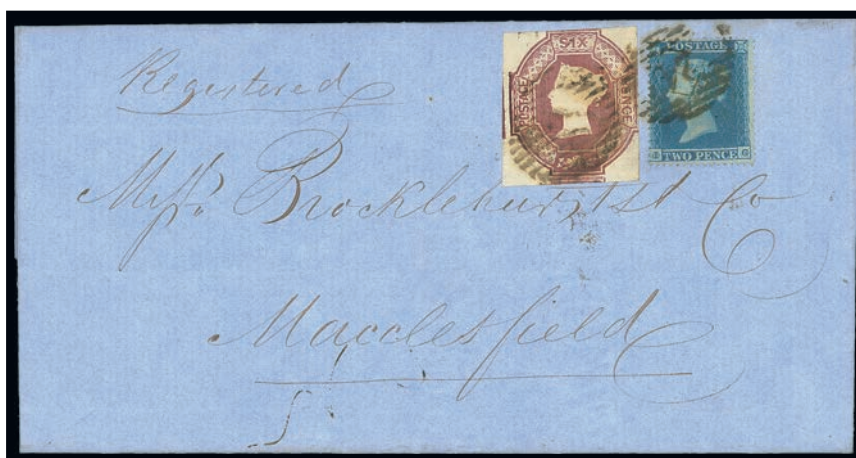 Registered
SIX
POSTAGE
PENCE
POSTAGE
TWO PENCE
G
Messrs. Brocklehurst & Co
Macclesfield